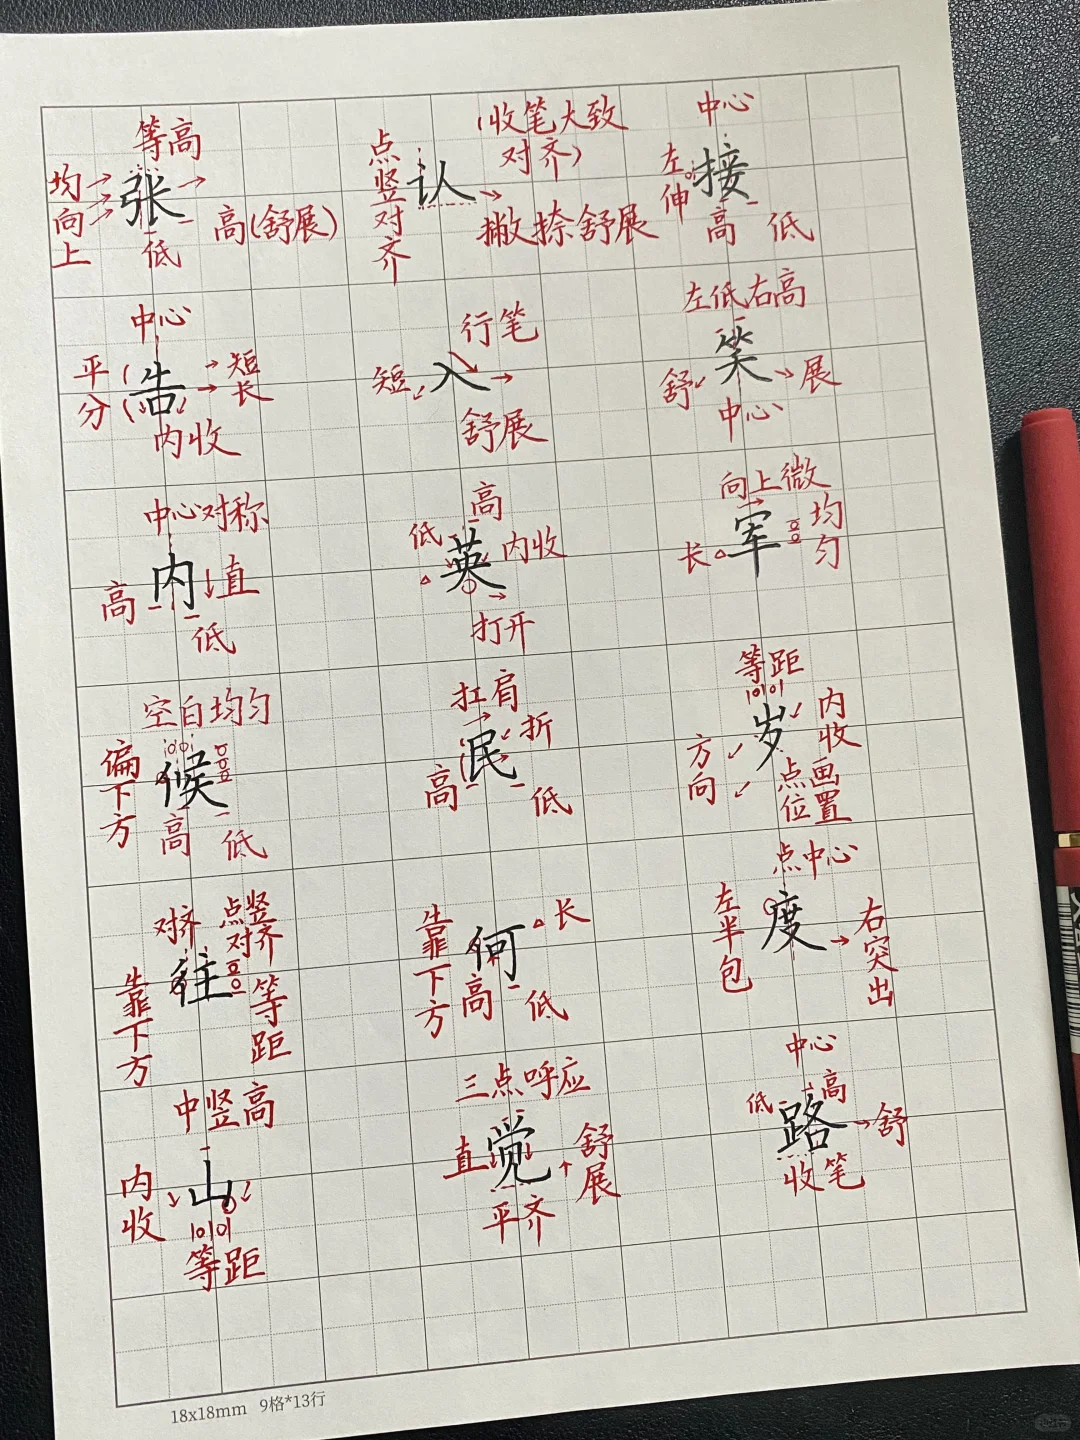 等高
均向上
张
低
高(舒展)
点竖对齐
认
(收笔大致
对齐)
撇捺舒展
中心
左伸
接
高 低
中心
平分
告
短
长
内收
行笔
短
入
舒展
左低右高
舒
笑
展
中心
中心对称
高
内
直
低
高
低
英
内收
打开
向上微
长
军
均匀
空白均匀
偏下方
候
高 低
扛肩
民
折
高 低
等距
方向
岁
内收
点画
位置
对齐
点竖
对齐
靠下方
往
等距
靠下方
何
长
高 低
点中心
左半包
度
右突出
中竖高
内收
山
等距
三点呼应
直
觉
舒展
平齐
中心
低
高
路
舒
收笔
18x18mm 9格*13行